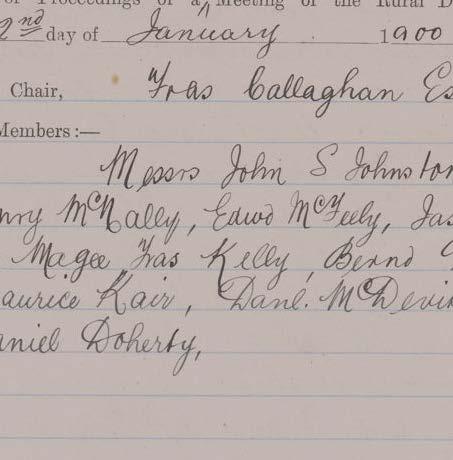 of Proceedings of a Meeting of the Rural D
2nd day of January . 1900
Chair, Fras Callaghan Es
Members :—
Messrs John S Johnston
nry McNally, Edwd McFeely, Jas
Magee, Fras Kelly, Bernd
aurice Kair, Danl. McDevit
aniel Doherty,